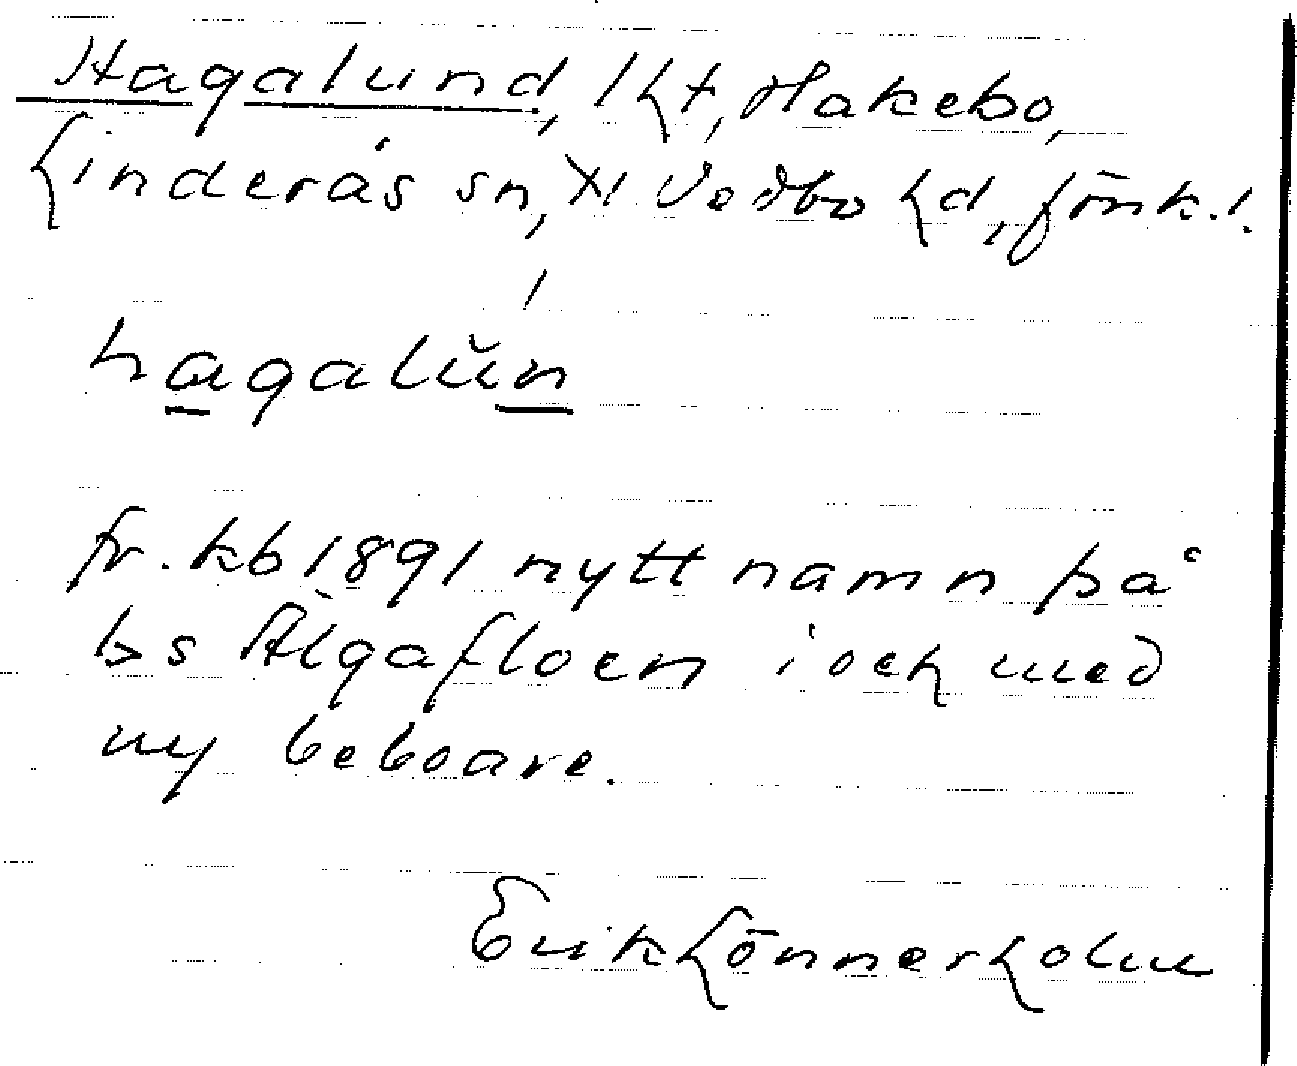 Hagalund, lht, Hakebo,
Linderås sn, N Vedbo hd, Jönk. l.
hagalŭn
fr. kb 1891 nytt namn på
bs Älgafloen i och med
ny beboare.
Erik Lönnerholm